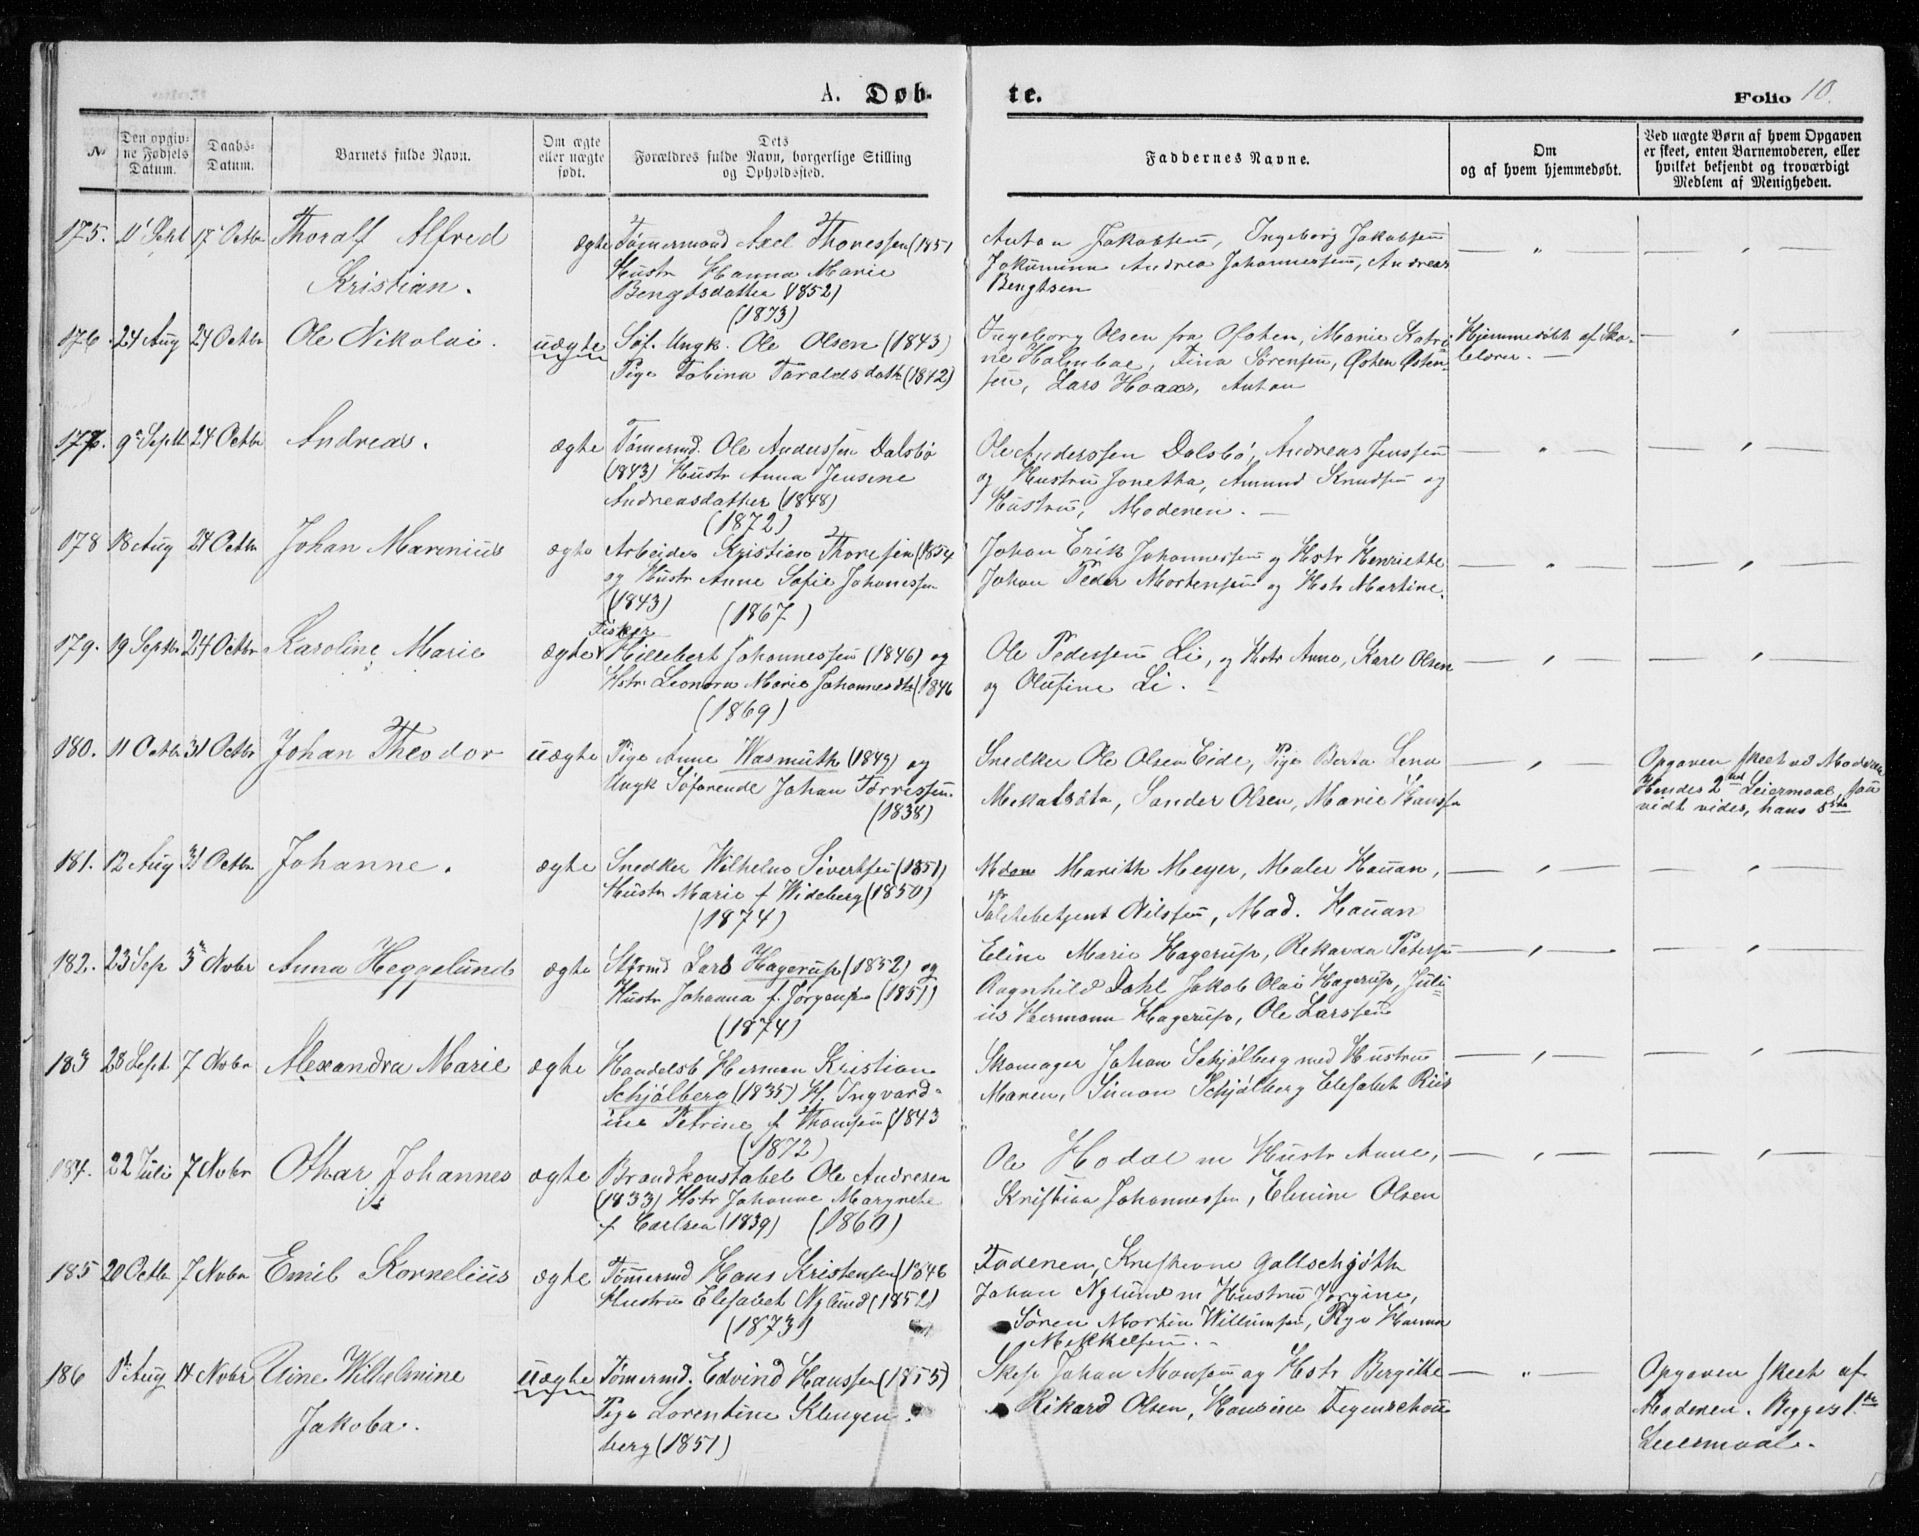 A. Døb-
te.
Folio 10.
№
Den opgiv-
ne Fødsels
Datum.
Daabs-
Datum.
Barnets fulde Navn.
Om ægte
eller uægte
født.
Dets
Forældres fulde Navn, borgerlige Stilling
og Opholdssted.
Faddernes Navne.
Om
og af hvem hjemmedøbt.
Ved uægte Børn af hvem Opgaven
er skeet, enten Barnemoderen, eller
hvilket bekjendt og troværdigt
Medlem af Menigheden.
175. 11 Sept 17 Octbr Thoralf Alfred
Kristian.
ægte
Tømermand Axel Thoressen (1851
Hustr Hanna Marie
Bengtsdatter (1852)
(1873)
Anton Jakobsen, Ingeborg Jakobsen
Jakumina Andrea Johannessen, Andreas
Bengtsen
176. 24 Aug 24 Octbr Ole Nikolai.
uægte
Søf. Ungk. Ole Olsen (1843)
Pige Tobina Taraldsdatr (1842)
Ingeborg Olsen fra Ofoten, Marie Katri-
ne Holmboe, Tina Sørensen, Østen Østen-
sen, Lars Hoaas, Anton
Hjemmedøbt af Sko-
lelærer.
177. 9 Septb 24 Octbr Andreas.
ægte
Tømermd. Ole Anderssen Dalsbø
(1843) Hustr Anna Jensine
Andreasdatter (1848)
(1872)
Ole Anderssen Dalsbø, Andreas Jenssen
og Hustru Jonetha, Amund Knudsen og
Hustru, Moderen.
178 18 Aug 24 Octbr Johan Marenius
ægte
Arbeider Kristian Thoresen (1854
og Hustr Anne Sofie Johannssen
(1843) (1867)
Johan Erik Johannessen og Hstr Henriette
Johan Peder Mortensen og Hstr Martine.
179. 19 Septbr 24 Octbr Karoline Marie
ægte
Fisker
Hillebert Johannessen (1846) og
Hstr. Leonora Marie Johannesdtr (1846
(1869)
Ole Pedersen Li, og Hstr Anne, Karl Olsen
og Olufine Li.
180. 11 Octbr 31 Octbr Johan Theodor
uægte
Pige Anne Wasmuth (1849) og
Ungk Søfarende Johan Torrissen
(1838)
Snedker Ole Olsen Eide, Pige Berta Lena
Mekalsdtr, Sander Olsen, Marie Hanssen
Opgaven skeet ved Moderen
Hendes 2det Leiermaal, saa
vidt vides, hans 5te
181. 12 Aug 31 Octbr Johanne.
ægte
Snedker Wilhelm Sivertsen (1851)
Hustr Marie f Wideberg (1850)
(1874)
Mdm Marith Meyer, Maler Hauan,
Politibetjent Nilssen, Mad. Hauan
182. 23 Sep 3 Nvbr Anna Heggelund
ægte
Styrmd Lars Hagerup (1852) og
Hustr Johanna f. Jørgens (1851)
(1874)
Eline Marie Hagerup, Rekarda Petersen
Ragnhild Dahl Jakob Olai Hagerup, Juli-
us Hermann Hagerup, Ole Larssen
183 28 Sept 7 Nvbr Alexandra Marie
ægte
Handelsb Herman Kristian
Schjølberg (1835) H. Ingvard-
ine Petrine f Thomsen (1843
(1872)
Skomager Johan Schjølberg med Hustru
Maren, Simon Schjølberg Elesabet Riis
184. 22 Juli 7 Nvbr Othar Johannes
ægte
Brandkonstabel Ole Andresen
(1833) Hstr Johanne Margrete
f Carlsen (1839) (1860)
Ole Hodal m Hustr Anne,
Kristian Johannessen, Elenine Olsen
185 20 Octbr 7 Nvbr Emil Kornelius
ægte
Tømermd Hans Kristensen (1846
Hustru Elesabet Nylund (1852)
(1873)
Faderen, Kristianne Galtschjøtt
Johan Nylund m Hustru Jørgine,
Søren Morten Willumsen, Pige Hanna
Mekkelsen.
186 1ste Aug 14 Nvbr Aine Wilhelmine
Jakoba.
uægte
Tømermd. Edvind Hanssen (1855)
Pige Lorentine Klingen-
berg (1851)
Skips Johan Monsen og Hstr Bergitte
Rikard Olsen, Hansine Fegenschou
Opgaven skeet af
Moderen. Begges 1ste
Leiermaal.